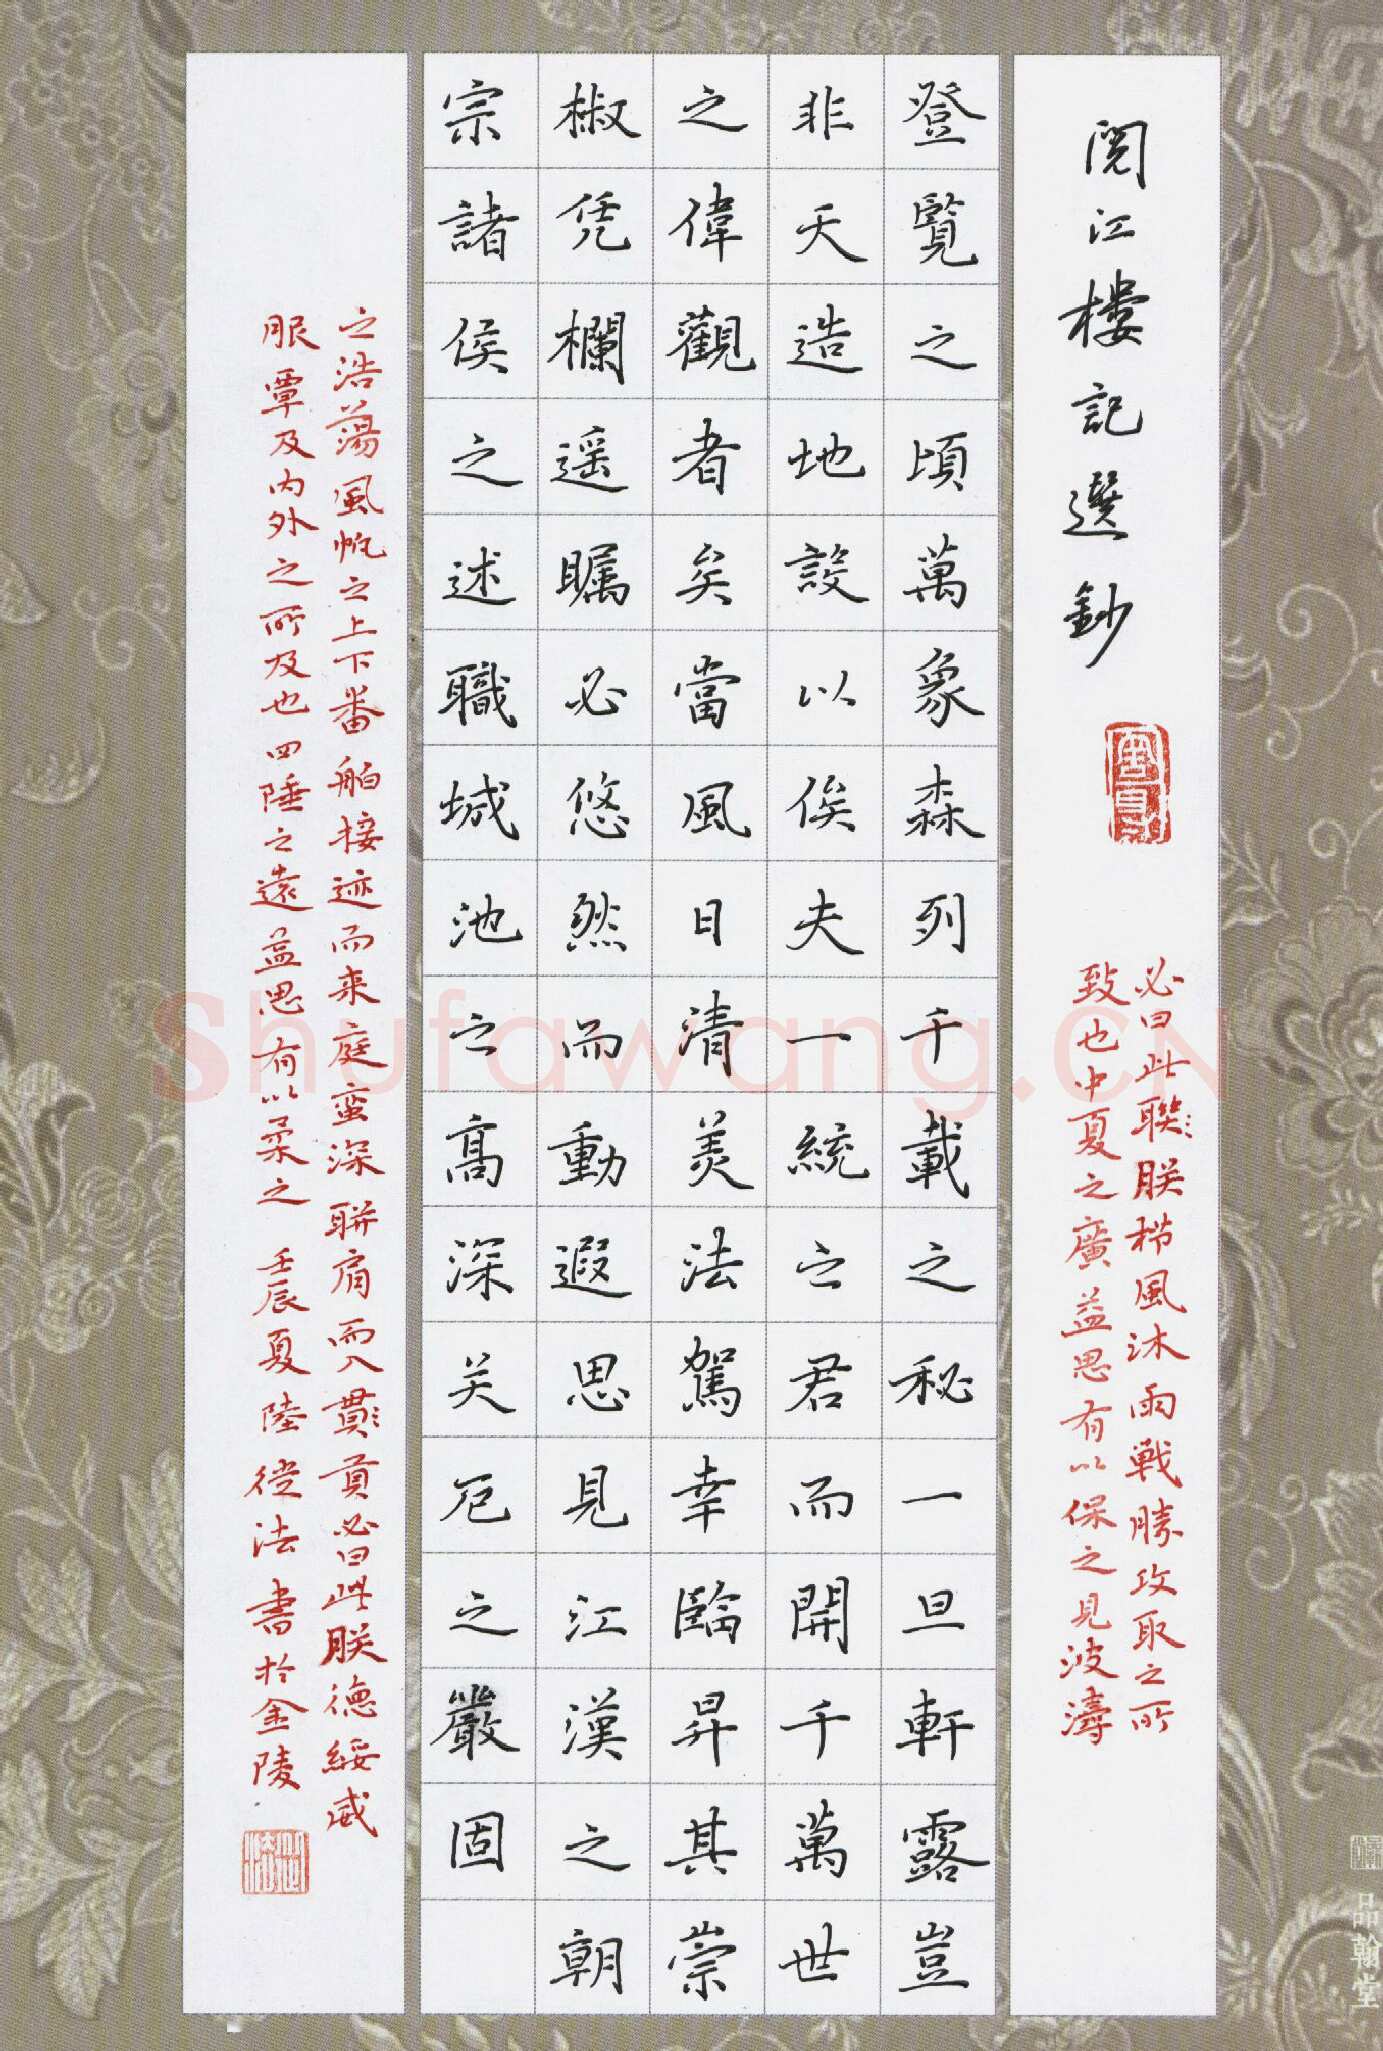 閱江樓記選鈔
必曰此聯朕栉風沐雨戰勝攻取之所
致也中夏之廣益思有以保之見波濤
登覽之頃萬象森列千載之秘一旦軒露豈
非天造地設以俟夫一統之君而開千萬世
之偉觀者矣當風日清美法駕幸臨昇其崇
椒凭欄遥矚必悠然而動遐思見江漢之朝
宗諸侯之述職城池之高深关厄之嚴固
之浩蕩風帆之上下番舶接迹而来庭蛮深聨肩而入貫貢必曰此朕德綏威
服覃及内外之所及也四陲之遠益思有以柔之 壬辰夏陸從法書於金陵
品翰堂
Shufawang.CN